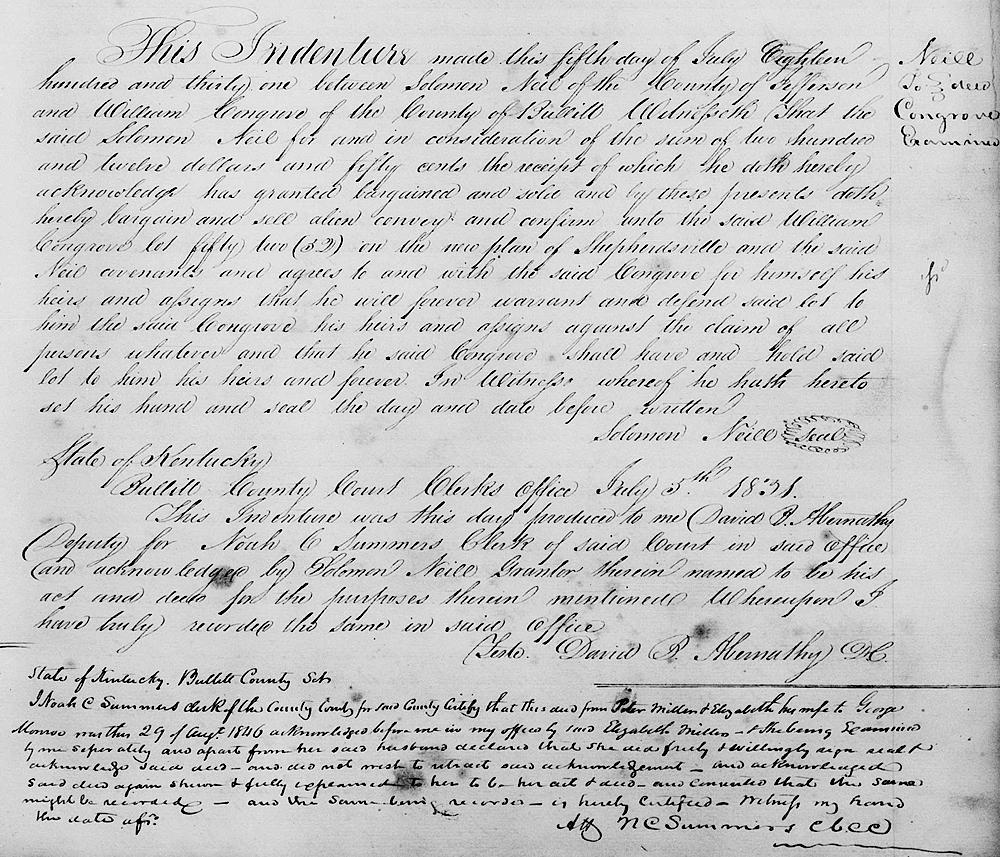 This Indenture made this fifth day of July Eighteen
hundred and thirty one between Solomon Neil of the County of Jefferson
and William Congrove of the County of Bullitt Witnesseth That the
said Solomon Neil for and in consideration of the sum of two hundred
and twelve dollars and fifty cents the receipt of which he doth hereby
acknowledge has granted bargained and sold and by these presents doth
hereby bargain and sell alien convey and confirm unto the said William
Congrove lot fifty two (52) on the new plan of Shepherdsville and the said
Neil covenants and agrees to and with the said Congrove for himself his
heirs and assigns that he will forever warrant and defend said lot to
him the said Congrove his heirs and assigns against the claim of all
persons whatever and that he said Congrove shall have and hold said
lot to him his heirs and forever. In Witness whereof he hath hereto
set his hand and seal the day and date before written
Solomon Neill Seal
Neill
To deed
Congrove
Examined
State of Kentucky
Bullitt County Court Clerks office July 5th 1831.
This Indenture was this day produced to me David P. Abernathy
Deputy for Noah C Summers Clerk of said Court in said office
and acknowledged by Solomon Neill Grantor therein named to be his
act and deed for the purposes therein mentioned Whereupon I
have truly recorded the same in said office
Teste. David P. Abernathy DC.
State of Kentucky. Bullitt County Sct
I Noah C Summers clerk of the County Court for said County Certify that this deed from Peter Miller & Elizabeth his wife to George
Monroe was this 29 of Augt 1846 acknowledged before me in my office by said Elizabeth Miller & she being Examined
by me seperately and apart from her said husband declared that she did freely & willingly sign seal &
acknowledge said deed and did not wish to retract said acknowledgement and acknowledged
said deed again shewn & fully explained to her to be her act & deed and consented that the same
might be recorded and the same being recorded is hereby certified Witness my hand
the date afsd.
Att N C Summers CBCC